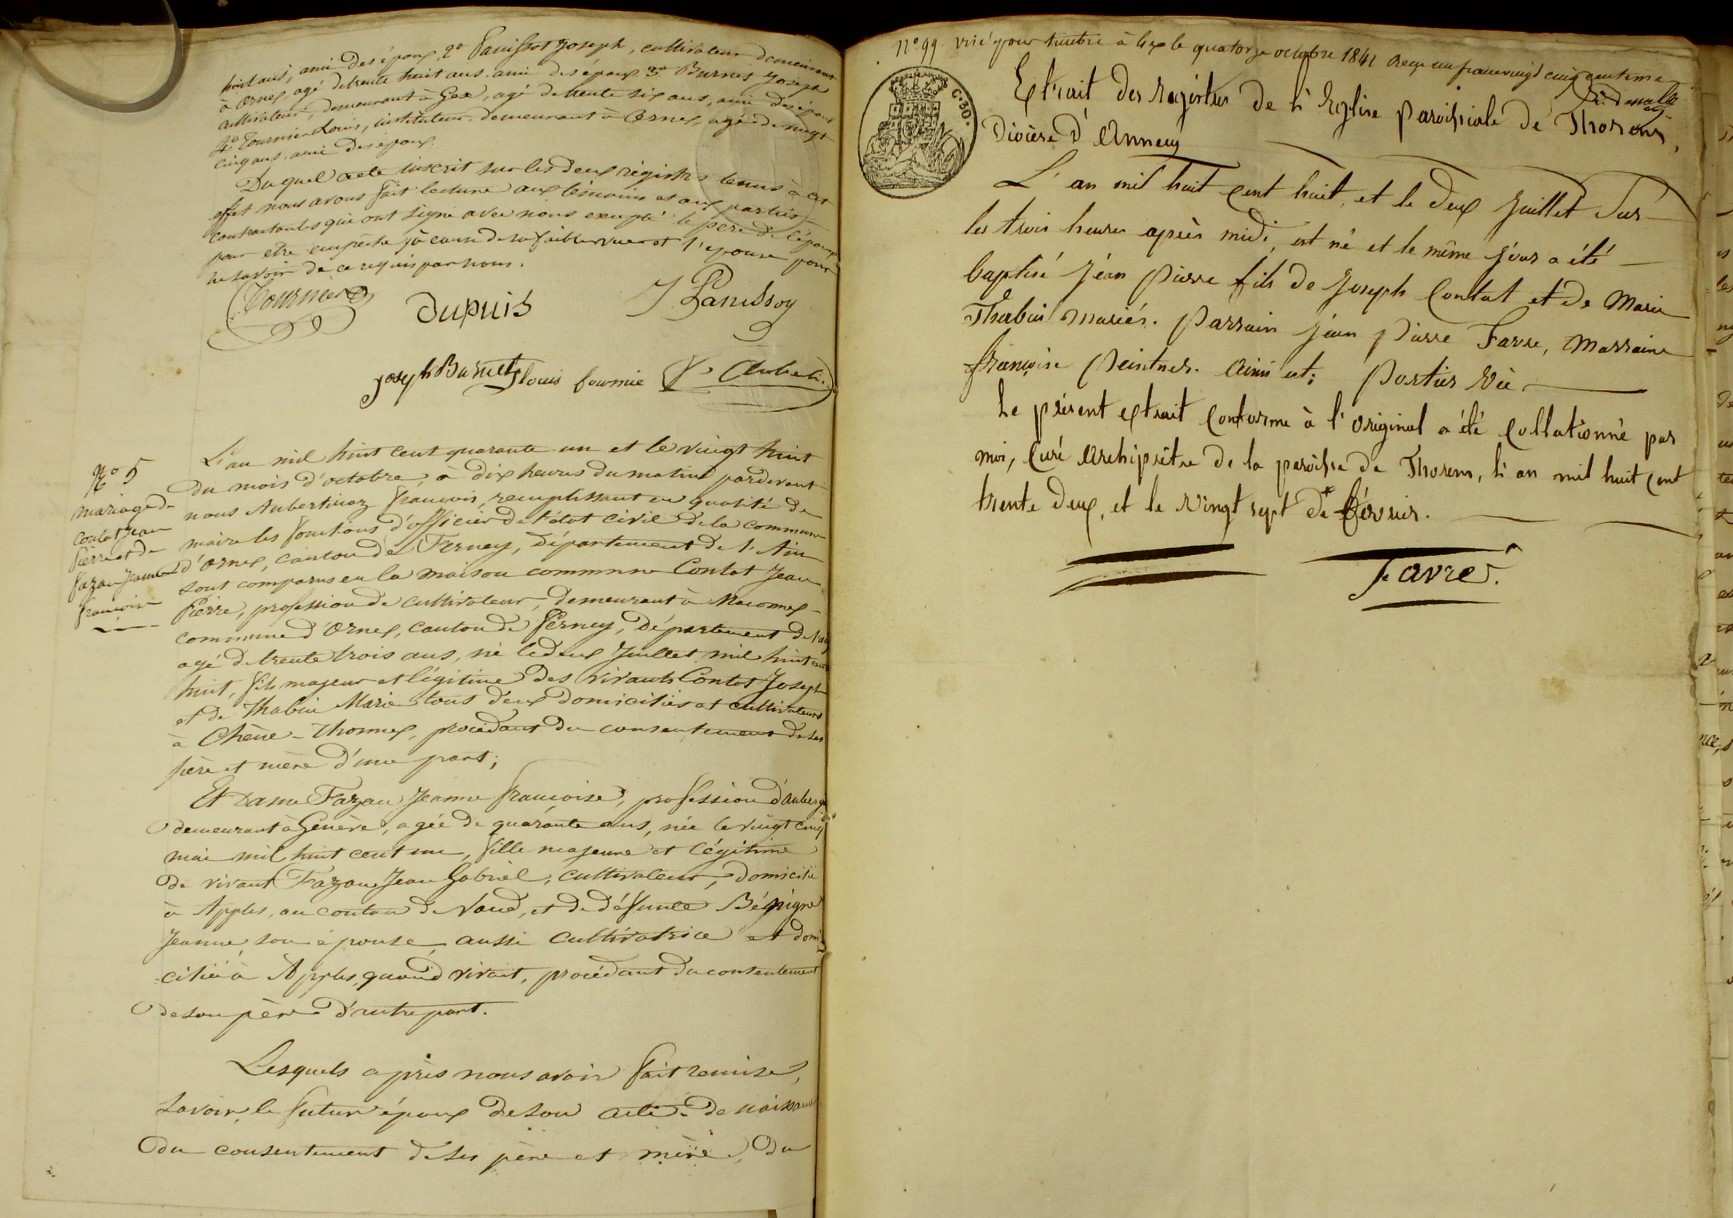 huit ans, ami des époux 2° Panissot Joseph, cultivateur demeurant
à Ornex agé de trente huit ans ami des époux 3° Burnet Joseph
cultivateur, demeurant à Gex, agé de trente six ans, ami des époux
4° Fournier Louis, instituteur demeurant à Ornex, agé de vingt
cinq ans, ami des époux.
Du quel acte inscrit sur les deux régistres tenus à cet
effet nous avons fait lecture aux témoins et aux parties
contractantes qui ont signé avec nous excepté le père de l'époux
pour être empêché à cause de sa faible vue et l'épouse pour
ne savoir de ce requis par nous.
Fournier Dupuis J Panissoy
joseph Burnet louis fournie
N° 5
mariage de
Contat Jean
Pierre et de
Fazan Jeanne
françoise
L'an mil huit cent quarante un et le vingt huit
du mois d'octobre, à dix heures du matin pardevant
nous Aubertinaz François, remplissant en qualité de
maire les fonctions d'officier de l'état civil de la commune
d'Ornex, canton de Ferney, département de l'Ain
sont comparus en la maison commune Contat Jean
Pierre, profession de cultivateur, demeurant à Maconnex
commune d'Ornex, canton de Ferney, département de l'ain
agé de trente trois ans, né le deux Juillet mil huit cent
huit, fils majeur et légitime des vivants Contat Joseph
et de Thabuis Marie tous deux domiciliés et cultivateurs
à Chêne-Thonnex, procédant du consentement de ses
père et mère d'une part;
Et Dame Fazan Jeanne françoise, profession d'auberg
demeurant à Genève, agée de quarante ans, née le vingt cinq
mai mil huit cent un, fille majeure et légitime
de vivant Fazan Jean Gabriel, cultivateur, domicilié
à Apples, au canton de Vaud, et de défunte Béguigne
Jeanne, son épouse, aussi cultivatrice et domi
ciliée à Apples, quand vivait, procédant du consentement
de son père d'autre part.
Lesquels après nous avoir fait remise,
savoir, le futur époux de son acte de naissance
du consentement de ses père et mère, du
N° 99 visé pour timbre à Gex le quatorze octobre 1841 reçu un franc vingt cinq centimes
C. 30.
Extrait des registres de l'Eglise paroissiale de Thorens,
Diocèse d'Annecy
L'an mil huit cent huit, et le deux Juillet sur
les trois heures après midi, est né et le même jour a été
baptisé jean pierre fils de Joseph Contat et de Marie
Thabuis mariés. parrain jean pierre Favre, Marraine
françoise Peintner. Ainsi est; Portier Vic
Le présent extrait conforme à l'original a été collationné par
moi, Curé Archiprêtre de la paroisse de Thorens, l'an mil huit cent
trente deux, et le vingt sept de février.
Favre.